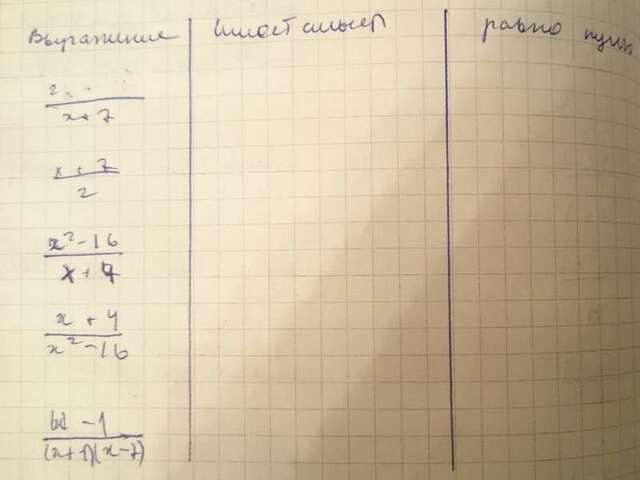 Выражение имеет смысл равно нулю
2
x + 7
x + 7
2
x² - 16
x + 4
x + 4
x² - 16
- 1
(x + 1)(x - 7)